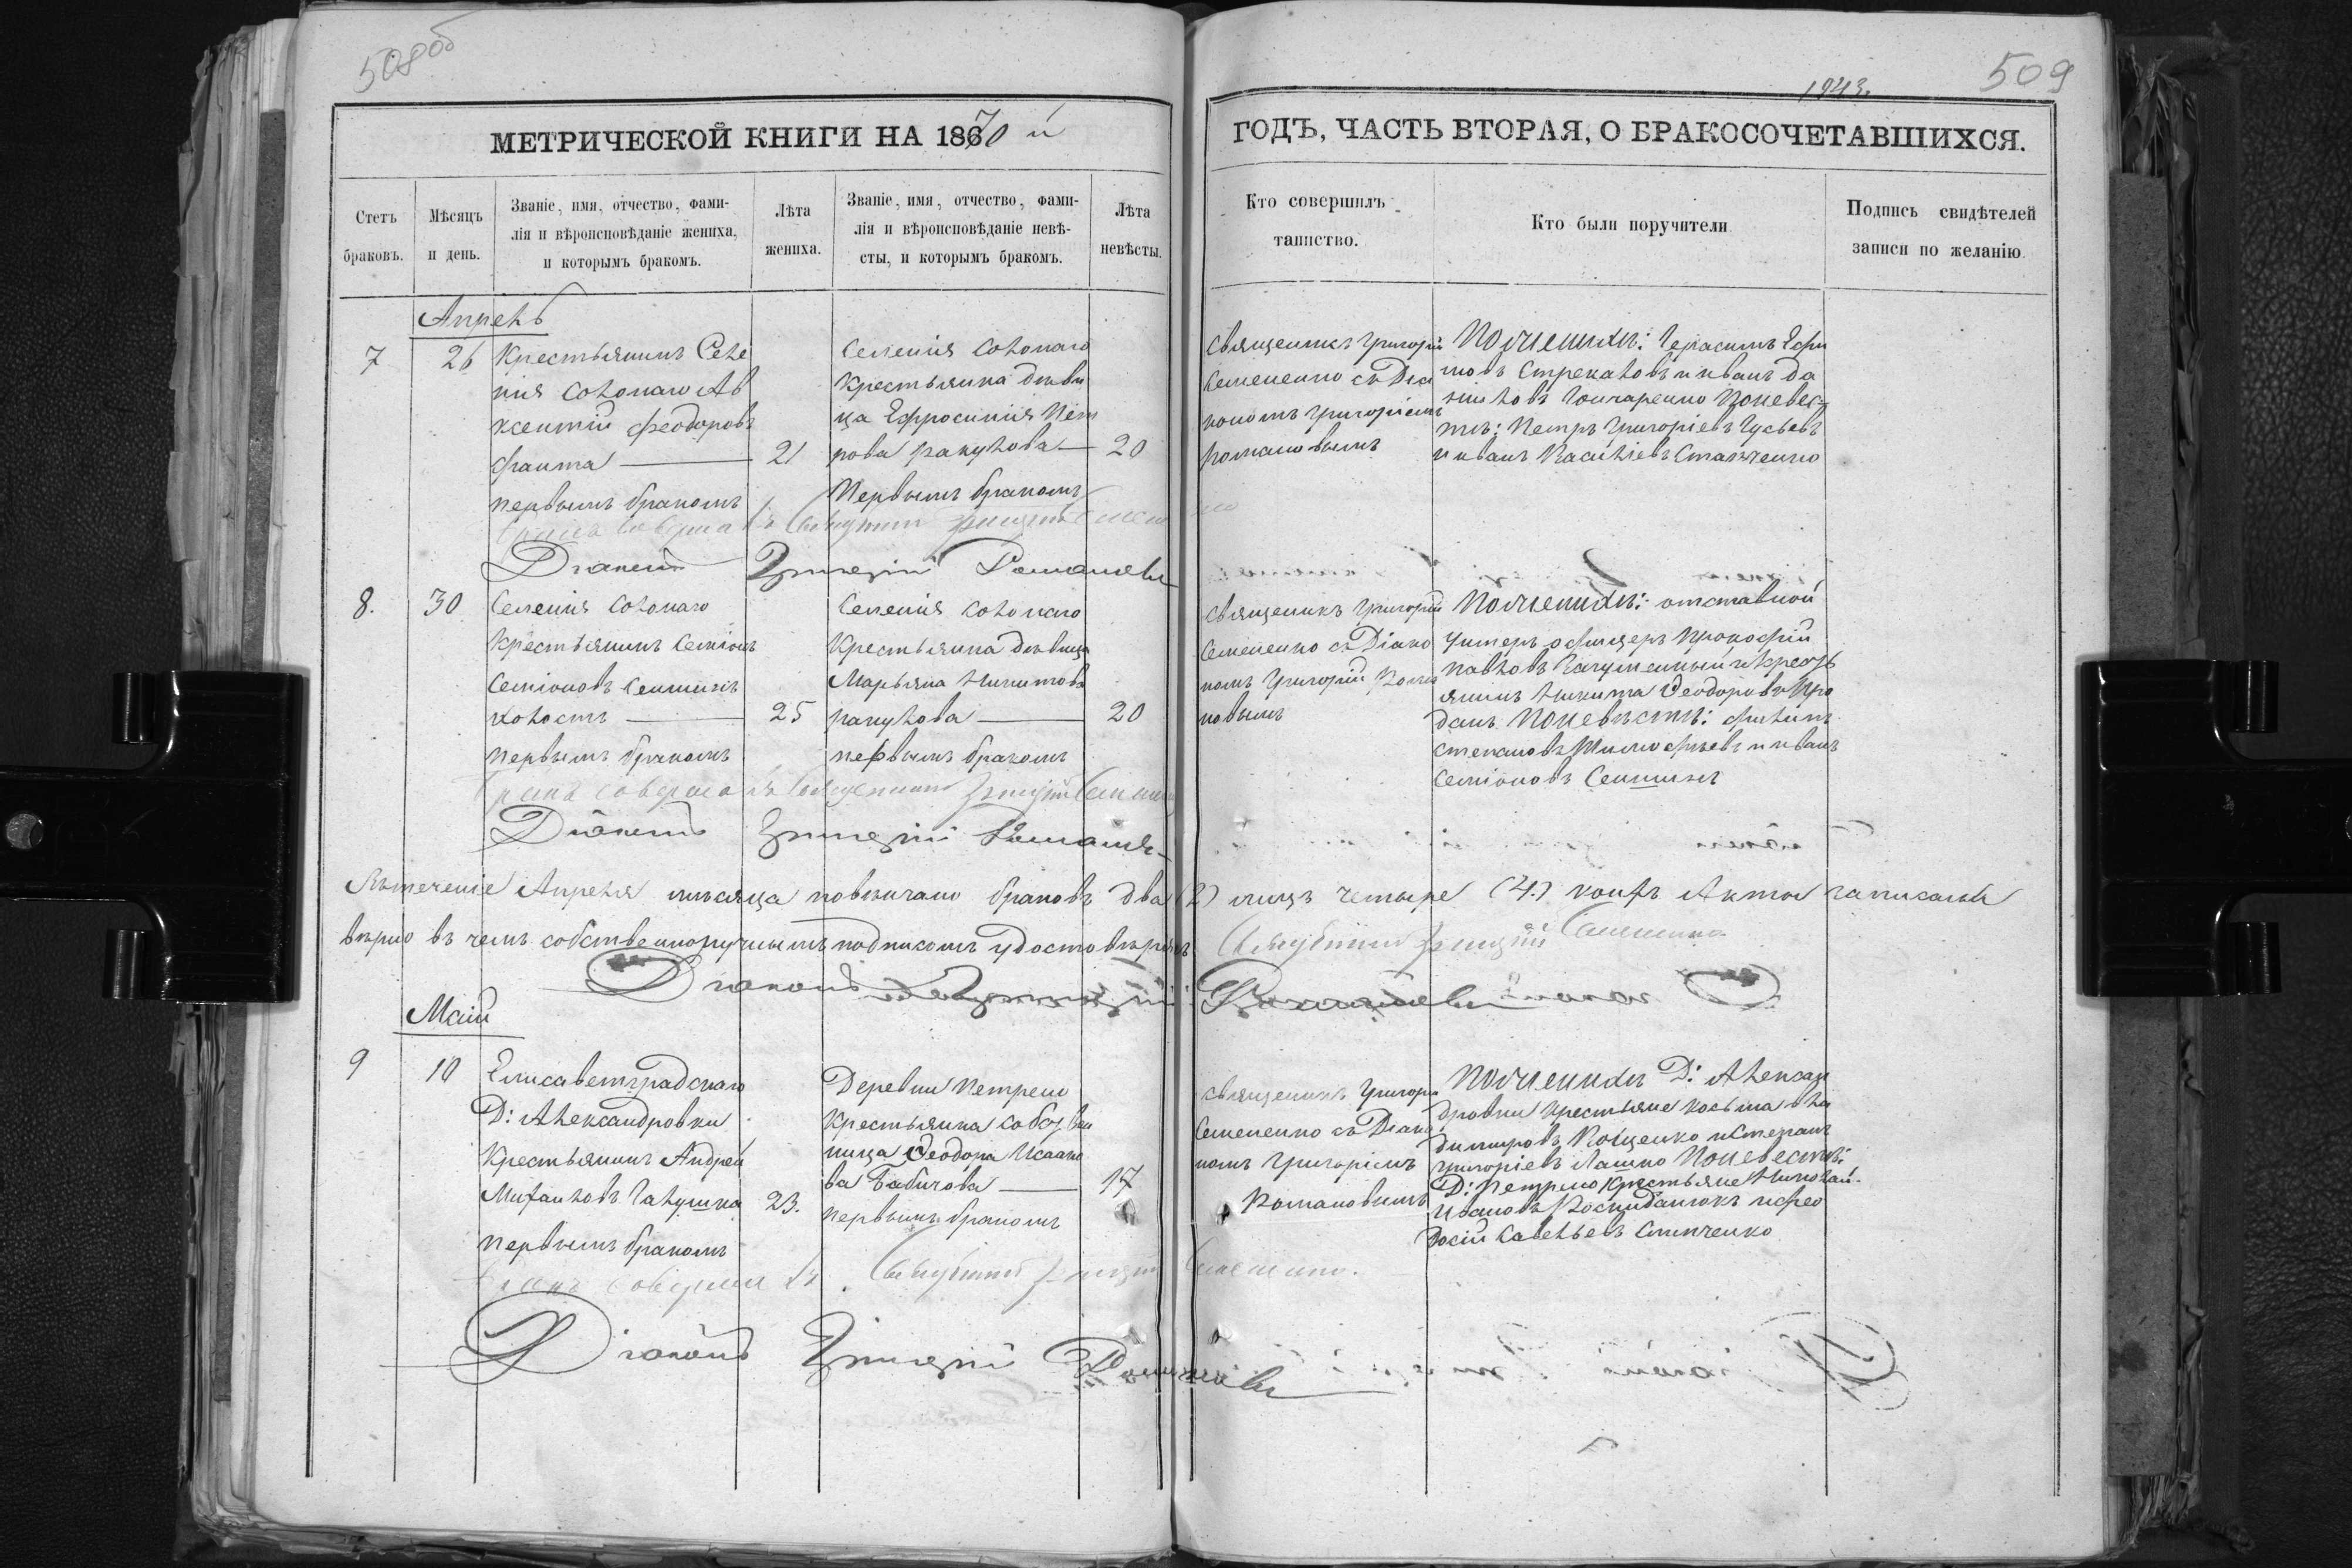 508об
509
1943.
МЕТРИЧЕСКОЙ КНИГИ НА 1870 й
ГОДЪ, ЧАСТЬ ВТОРАЯ, О БРАКОСОЧЕТАВШИХСЯ.
Счетъ браковъ.
Мѣсяцъ и день.
Званіе, имя, отчество, фами-
лія и вѣроисповѣданіе жениха,
и которымъ бракомъ.
Лѣта
жениха.
Званіе, имя, отчество, фами-
лія и вѣроисповѣданіе невѣ-
сты, и которымъ бракомъ.
Лѣта
невѣсты.
Кто совершилъ
таинство.
Кто были поручители
Подпись свидѣтелей
записи по желанію
Апрель
7
26
Крестьянинъ Селе
нія Солонаго Ав
ксентій Феодоровъ
Фаита
первымъ бракомъ
21
Селенія Солонаго
Крестьянка дѣви
ца Ефросинія Пет
рова ракулова
Первымъ бракомъ
20
Священникъ Григорій
Семененко съ Діа
кономъ Григоріемъ
Романовымъ
По женихѣ: Герасимъ Ефи
мовъ Стрекаловъ и иванъ да
ніиловъ Гончаренко По невес-
тѣ: Петръ Григоріевъ Гусьевъ
и иванъ Василіевъ
Бракъ совершалъ Священникъ Григорій Семененко
Діаконъ Григорій Романовъ
8.
30
Селенія Солонаго
Крестьянинъ Семіонъ
Семіоновъ
холостъ
первымъ бракомъ
25
Селенія Солонаго
Крестьянка дѣвица
Марьяна Никитова
ракулова
первымъ бракомъ
20
Священникъ Григорій
Семененко съ Діако
номъ Григорій Рома
новымъ
По женихѣ: отставной
Унтеръ офицеръ Прокофій
Павловъ и Кресть
янинъ Никита Феодоровъ Про
данъ По невѣстѣ: Филипъ
Степановъ Тимофѣевъ и иванъ
Семіоновъ
Бракъ совершалъ Священникъ Григорій Семененко
Діаконъ Григорій Романовъ
Въ теченіе Апреля мѣсяца повѣнчано браковъ два (2) лицъ четыре (4.) коихъ Акты записаны
вѣрно въ чемъ собственноручнымъ подписомъ удостовѣряемъ Священникъ Григорій Семененко
Діаконъ Григорій Романовъ
Маій
9
10
Елисаветградскаго
Д: Александровки
Крестьянинъ Андрей
Михаиловъ Галушка
первымъ бракомъ
23.
Деревни Петрено
Крестьянка собств
ница Феодора Исаако
ва Бабичова
первымъ бракомъ
17
Священникъ Григорій
Семененко съ Діако
номъ Григоріемъ
Романовымъ
По женихѣ Д: Алексан
дровки Крестьяне Косьма Вла
димировъ Коценко и Степанъ
Григоріевъ Лашко По невестѣ:
Д: Петрено Крестьяне Николай
Ивановъ и Фео
досій Савельевъ
Бракъ совершалъ Священникъ Григорій Семененко.
Діаконъ Григорій Романовъ